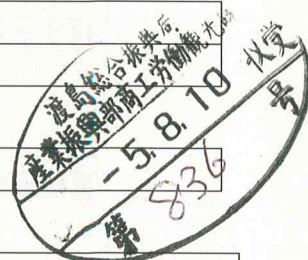 渡島総合振興局
産業振興部商工労働観光課
-5.8.10 収受
第 836 号